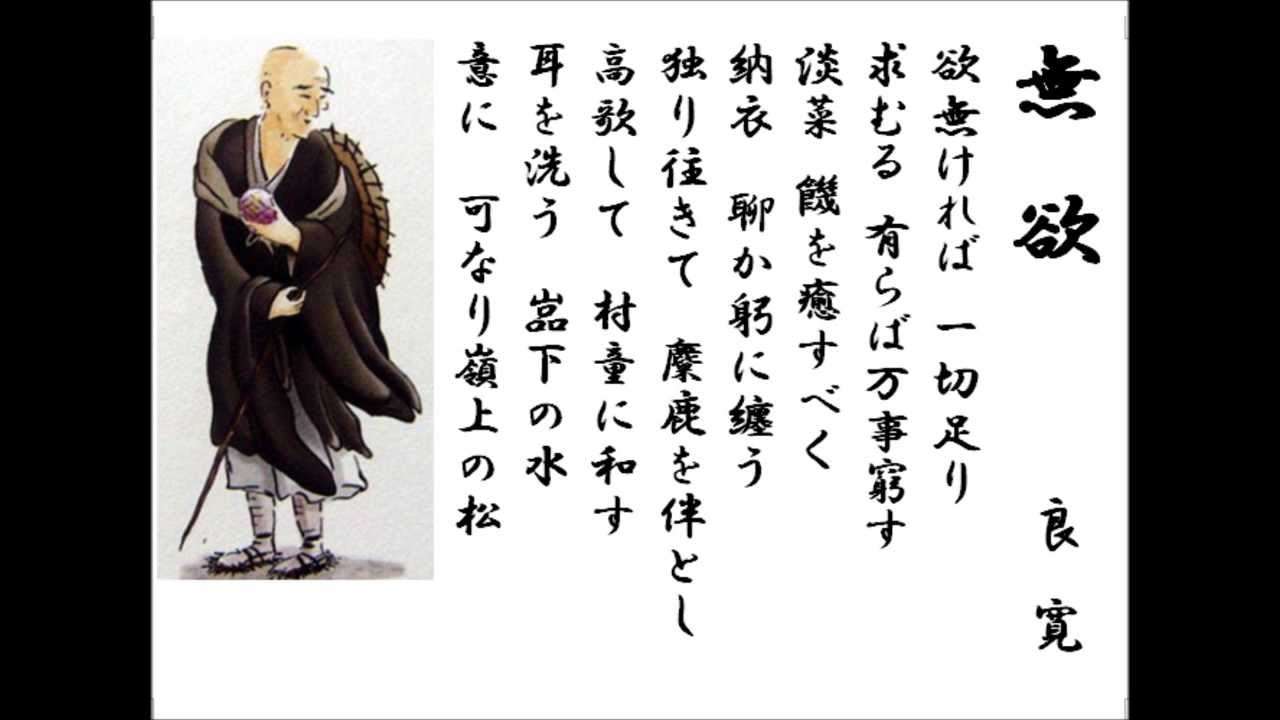 無欲
良寛
欲無ければ 一切足り
求むる 有らば万事窮す
淡菜 饑を癒すべく
納衣 聊か躬に纏う
独り往きて 麋鹿を伴とし
高歌して 村童に和す
耳を洗う 嵓下の水
意に 可なり嶺上の松